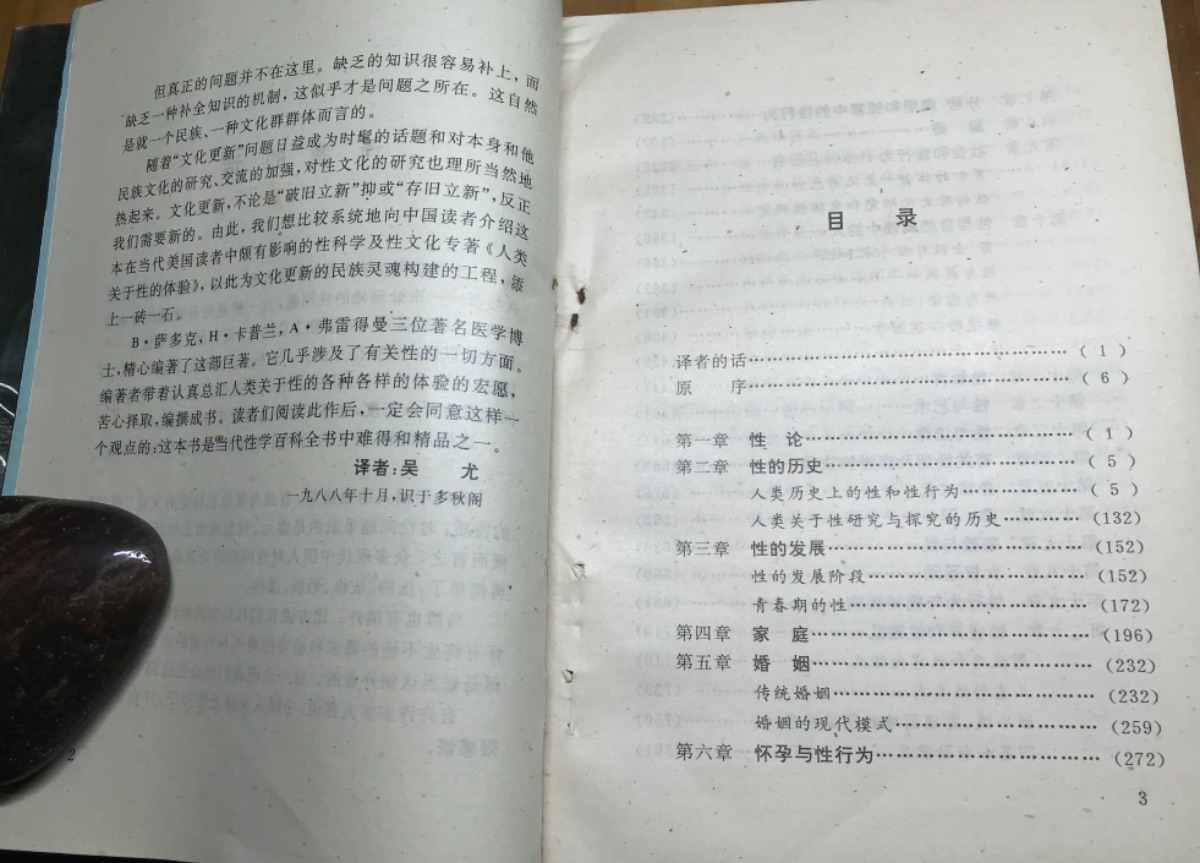 但真正的问题并不在这里。缺乏的知识很容易补上，而
缺乏一种补全知识的机制，这似乎才是问题之所在。这自然
是就一个民族、一种文化群群体而言的。
随着“文化更新”问题日益成为时髦的话题和对本身和他
民族文化的研究、交流的加强，对性文化的研究也理所当然地
热起来。文化更新，不论是“破旧立新”抑或“存旧立新”，反正
我们需要新的。由此，我们想比较系统地向中国读者介绍这
本在当代美国读者中颇有影响的性科学及性文化专著《人类
关于性的体验》，以此为文化更新的民族灵魂构建的工程，添
上一砖一石。
B·萨多克，H·卡普兰，A·弗雷得曼三位著名医学博
士，精心编著了这部巨著。它几乎涉及了有关性的一切方面。
编著者带着认真总汇人类关于性的各种各样的体验的宏愿，
苦心择取，编撰成书。读者们阅读此作后，一定会同意这样一
个观点的：这本书是当代性学百科全书中难得和精品之一。
译者：吴 尤
一九八八年十月，识于多秋阁
2
目 录
译者的话……………………………………（1）
原 序……………………………………（6）
第一章 性 论………………………………（1）
第二章 性的历史……………………………（5）
人类历史上的性和性行为………………（5）
人类关于性研究与探究的历史…………（132）
第三章 性的发展……………………………（152）
性的发展阶段……………………………（152）
青春期的性………………………………（172）
第四章 家 庭………………………………（196）
第五章 婚 姻………………………………（232）
传统婚姻…………………………………（232）
婚姻的现代模式…………………………（259）
第六章 怀孕与性行为………………………（272）
3